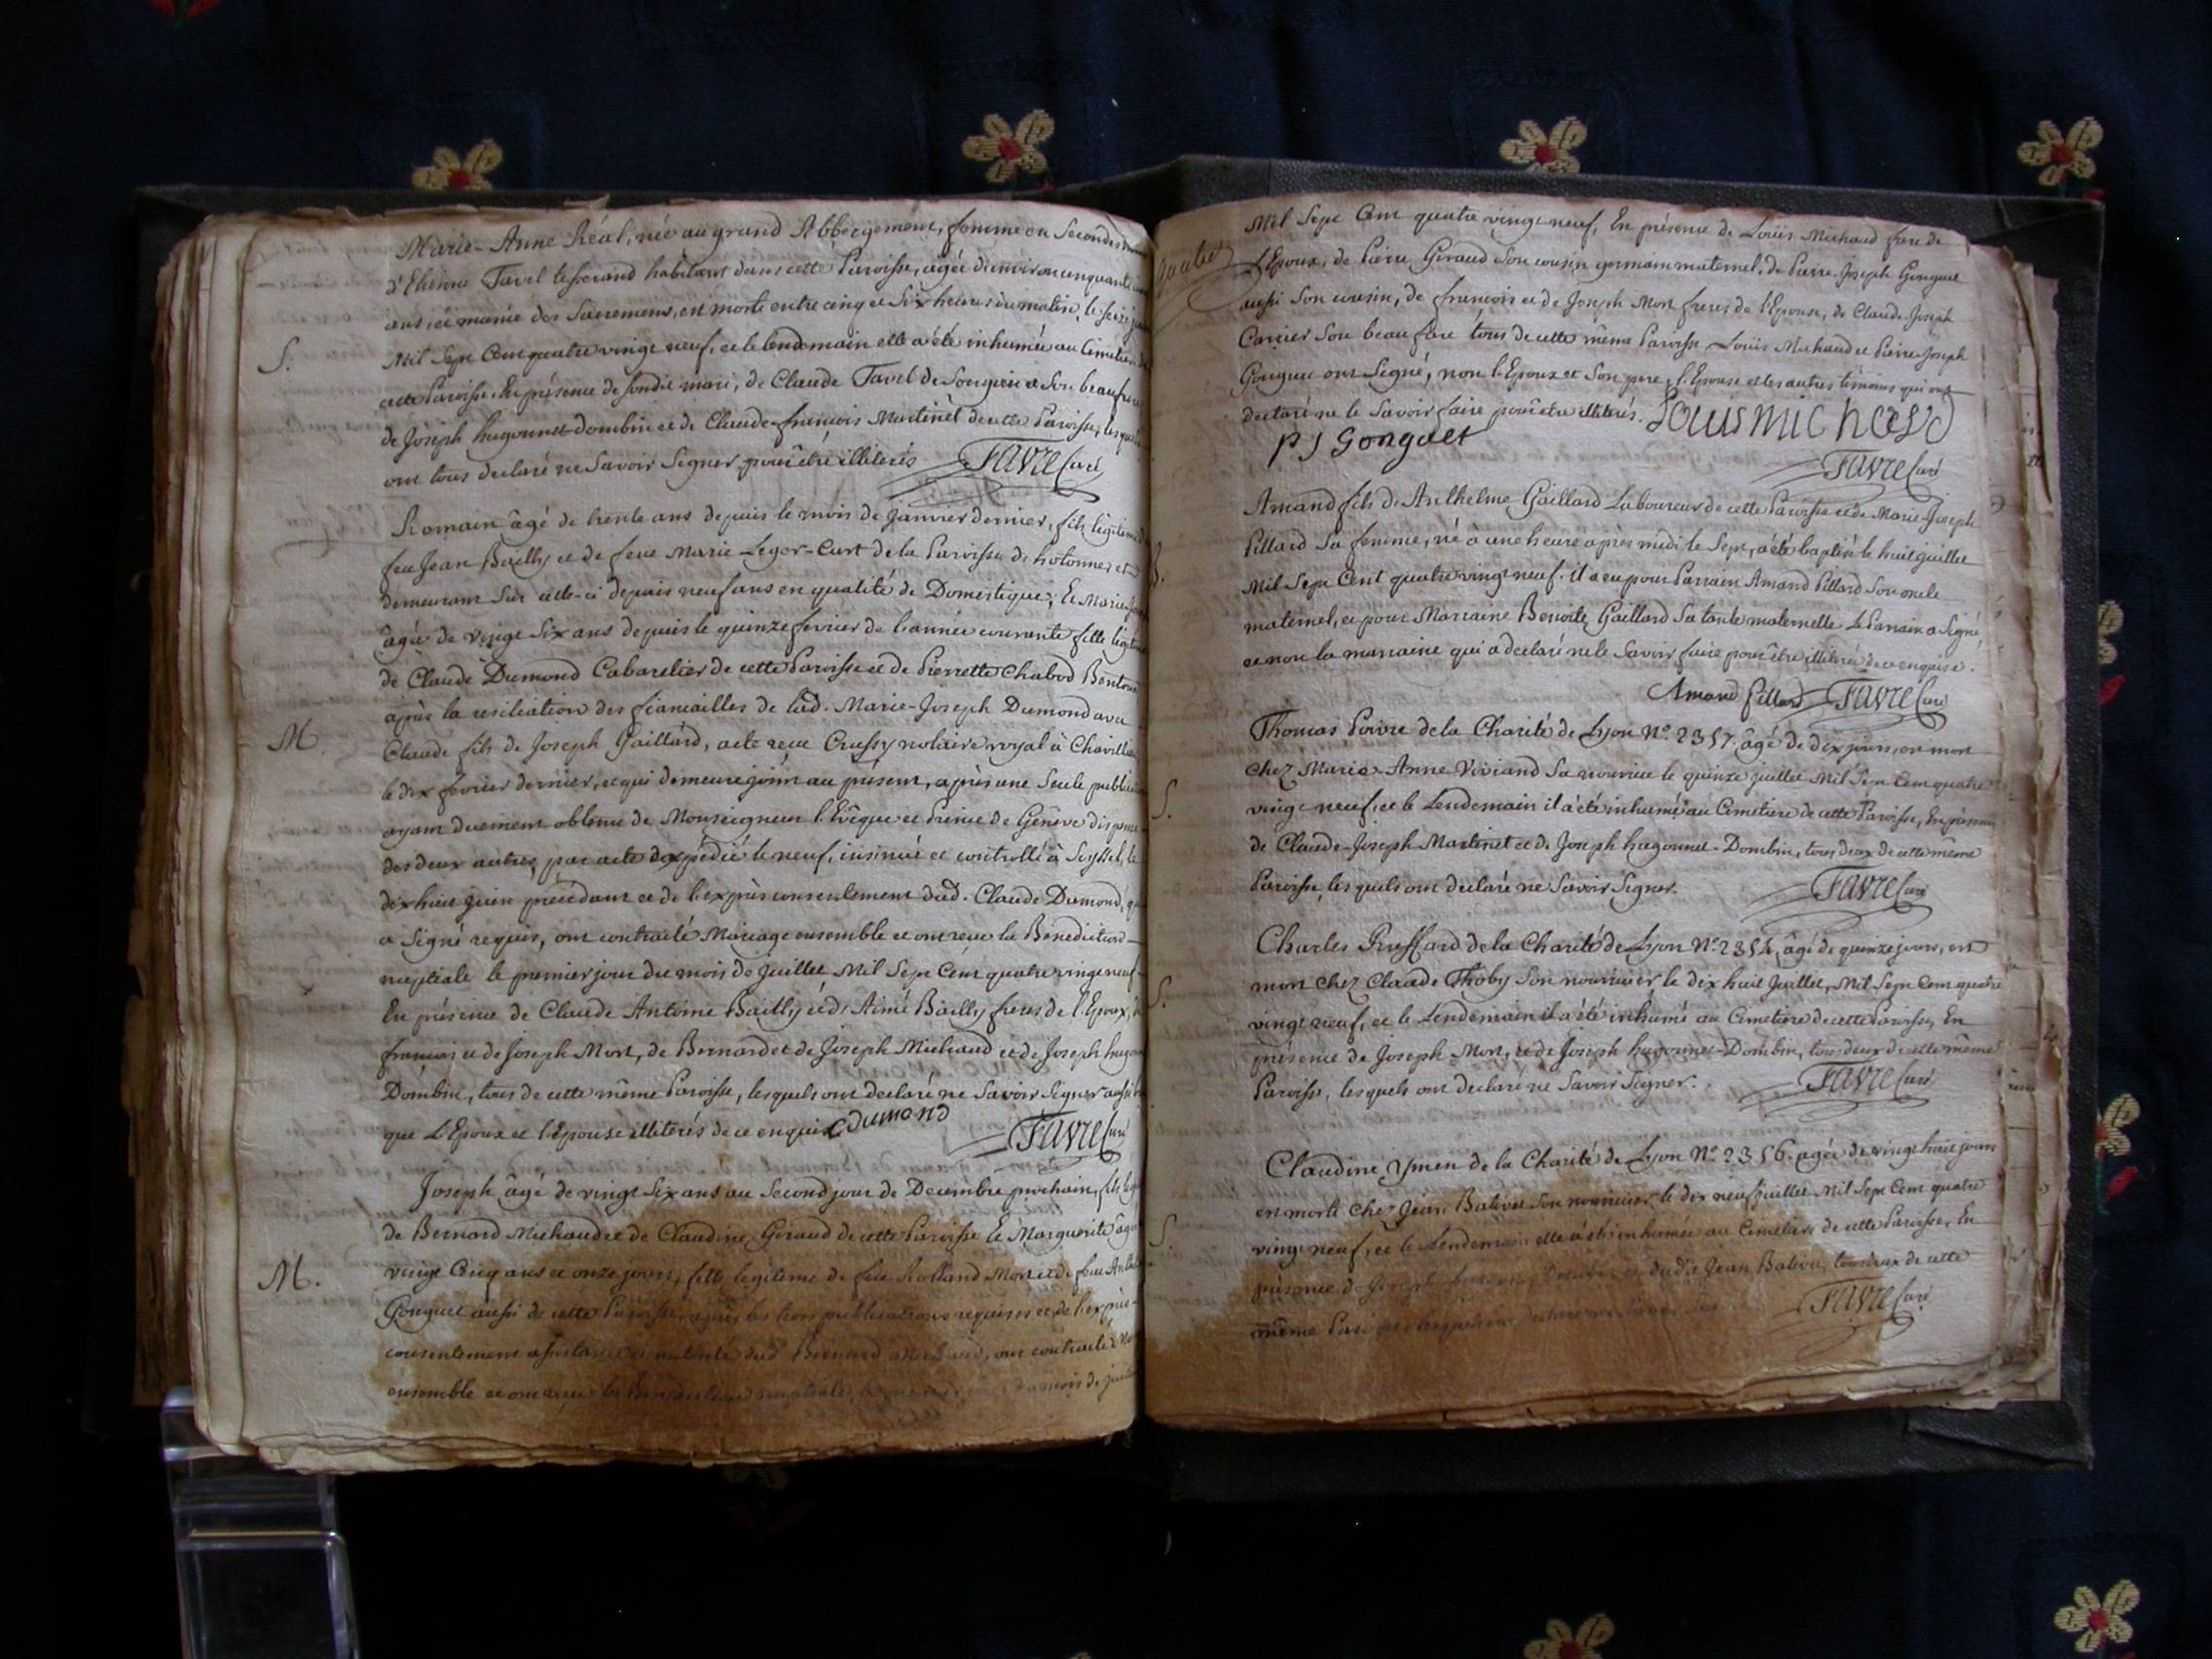 Marie-Anne Réal, née au grand Abbergement, femme en Secondes
d'Etienne Tavel tesserand habitant dans cette Paroisse, agée d'environ cinquante
ans, et munie des Sacremens, est morte entre cinq et Six heures du matin, le seize
S.
Mil Sept Cent quatre vingt neuf, et le lendemain elle a été inhumée au Cimetiere
cette Paroisse. En présence de sondit mari, de Claude Tavel de Songieu Son beaufrere
de Joseph hugonnet-Dombin et de Claude-francois Martinet de cette Paroisse, lesquels
ont tous declaré ne Savoir Signer pour être illiterés FAVRE Curé
Romain âgé de trente ans depuis le mois de Janvier dernier, fils légitime
feu Jean Bailly et de feue Marie Leger-Curt de la Paroisse de hotonnes et
demeurant Sur cette-ci depuis neuf ans en qualité de Domestique; Et Marie
âgée de vingt Six ans depuis le quinze fevrier de l'année courante fille
de Claude Dumond Cabaretier de cette Paroisse et de Pierrette Chabod
après la resiliation des fiancailles de lad. Marie-Joseph Dumond avec
M.
Claude fils de Joseph Gaillard, acte recu Crussy notaire royal à
le dix fevrier dernier, et qui demeure joint au présent, après une Seule
ayant duement obtenu de Monseigneur l'Evêque et Prince de Genève dispense
des deux autres, par acte expédié le neuf, insinué et controllé à Seyssel, le
dix huit juin précédant et de l'exprès consentement dud. Claude Dumond, qui
a Signé requis, ont contracté Mariage ensemble et ont recu la Bénediction
nuptiale le premier jour du mois de Juillet Mil Sept Cent quatre vingt neuf
En présence de Claude Antoine Bailly et d'Aimé Bailly freres de l'Epoux, de
francois et de Joseph Mort, de Bernard et de Joseph Michaud et de Joseph
Dombin, tous de cette même Paroisse, lesquels ont declaré ne Savoir Signer
que L'Epoux et l'Epouse illiterés de ce enquis Dumond
FAVRE Curé
Joseph âgé de vingt Six ans au Second jour de Decembre prochain, fils
de Bernard Michaud et de Claudine Giraud de cette Paroisse Et Marguerite
M.
vingt Cinq ans et onze jours, fille legitime de feu Rolland Mort et de feue
Gonguet aussi de cette Paroisse, après les trois publications requises et de l'exprès
consentement dud. Bernard Michaud, ont contracté
ensemble et ont recu la Benediction nuptiale le premier jour du mois de
Mil Sept Cent quatre vingt neuf, En présence de Louis Michaud frere de
L'Epoux, de Pierre Giraud Son cousin germain maternel, de Pierre-Joseph Gonguet
aussi Son cousin, de francois et de Joseph Mort freres de l'Epouse, de Claude-Joseph
Carrier Son beau frere tous de cette même Paroisse. Louis Michaud et Pierre-Joseph
Gonguet ont Signé, non l'Epoux et Son pere, l'Epouse et les autres témoins qui ont
declaré ne le Savoir faire pour être illiterés. Louis michaud
PJ Gonguet
FAVRE Curé
Amand fils d'Anthelme Gaillard Laboureur de cette Paroisse et de Marie-Joseph
Pillard Sa femme, né à une heure après midi le Sept, a été baptisé le huit juillet
B.
Mil Sept Cent quatre vingt neuf. il a eu pour Parrain Amand Pillard Son oncle
maternel, et pour Marraine Benoite Gaillard Sa tante maternelle Le Parrain a Signé
et non la marraine qui a declaré ne le Savoir faire pour être illiterée de ce enquise.
Amand Pillard FAVRE Curé
Thomas Poivre de la Charité de Lyon N° 2357. âgé de dix jours, est mort
chez Marie-Anne Viviand Sa nourrice le quinze juillet Mil Sept Cent quatre
S.
vingt neuf, et le Lendemain il a été inhumé au Cimetiere de cette Paroisse, En présence
de Claude-Joseph Martinet et de Joseph hugonnet-Dombin, tous deux de cette même
Paroisse, lesquels ont declaré ne Savoir Signer. FAVRE Curé
Charles Pruffard de la Charité de Lyon N° 2354, âgé de quinze jours, est
S.
mort chez Claude Thoby Son nourricier le dix huit Juillet, Mil Sept Cent quatre
vingt neuf, et le Lendemain il a été inhumé au Cimetiere de cette Paroisse, En
présence de Joseph Mort, et de Joseph hugonnet-Dombin, tous deux de cette même
Paroisse, lesquels ont declaré ne Savoir Signer. FAVRE Curé
Claudine Ymen de la Charité de Lyon N° 2356. agée de vingt huit jours
est morte chez Jean Balivet Son nourricier, le dix neuf juillet Mil Sept Cent quatre
S.
vingt neuf, et le Lendemain elle a été inhumée au Cimetiere de cette Paroisse, En
présence de Joseph dudit Jean Balivet, tous deux de cette
même Paroisse, lesquels ont declaré ne Savoir FAVRE Curé